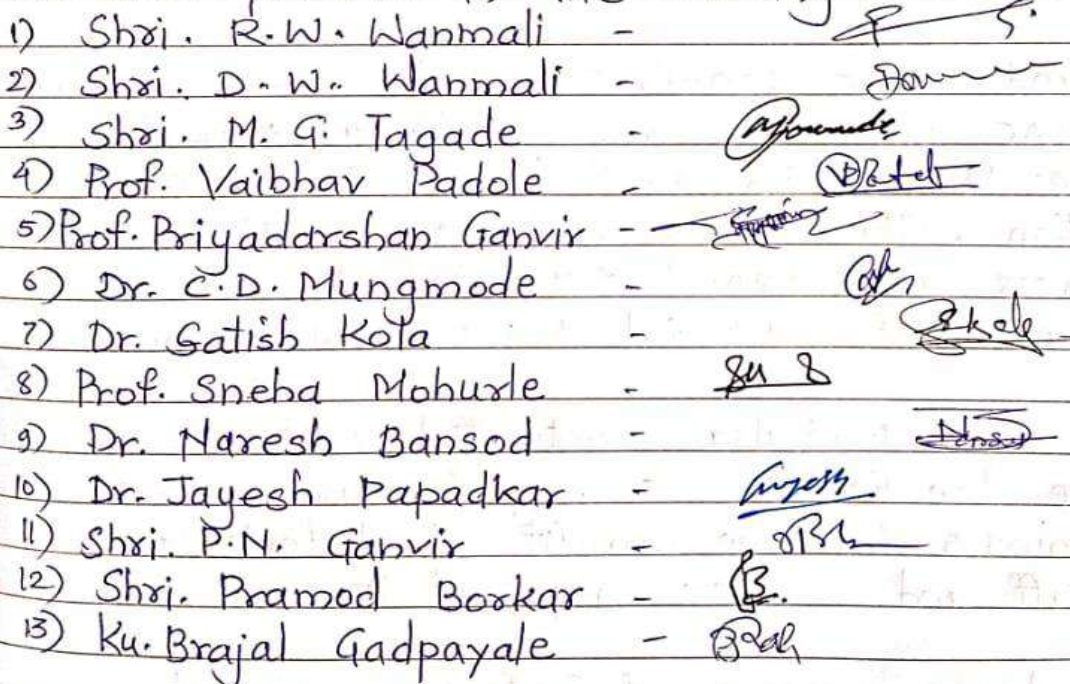 1) Shri. R.W. Wanmali -
2) Shri. D.W. Wanmali -
3) Shri. M.G. Tagade -
4) Prof. Vaibhav Padole -
5) Prof. Priyadarshan Ganvir -
6) Dr. C.D. Mungmode -
7) Dr. Satish Kola -
8) Prof. Sneha Mohurle -
9) Dr. Naresh Bansod -
10) Dr. Jayesh Papadkar -
11) Shri. P.N. Ganvir -
12) Shri. Pramod Borkar -
13) Ku. Brajal Gadpayale -